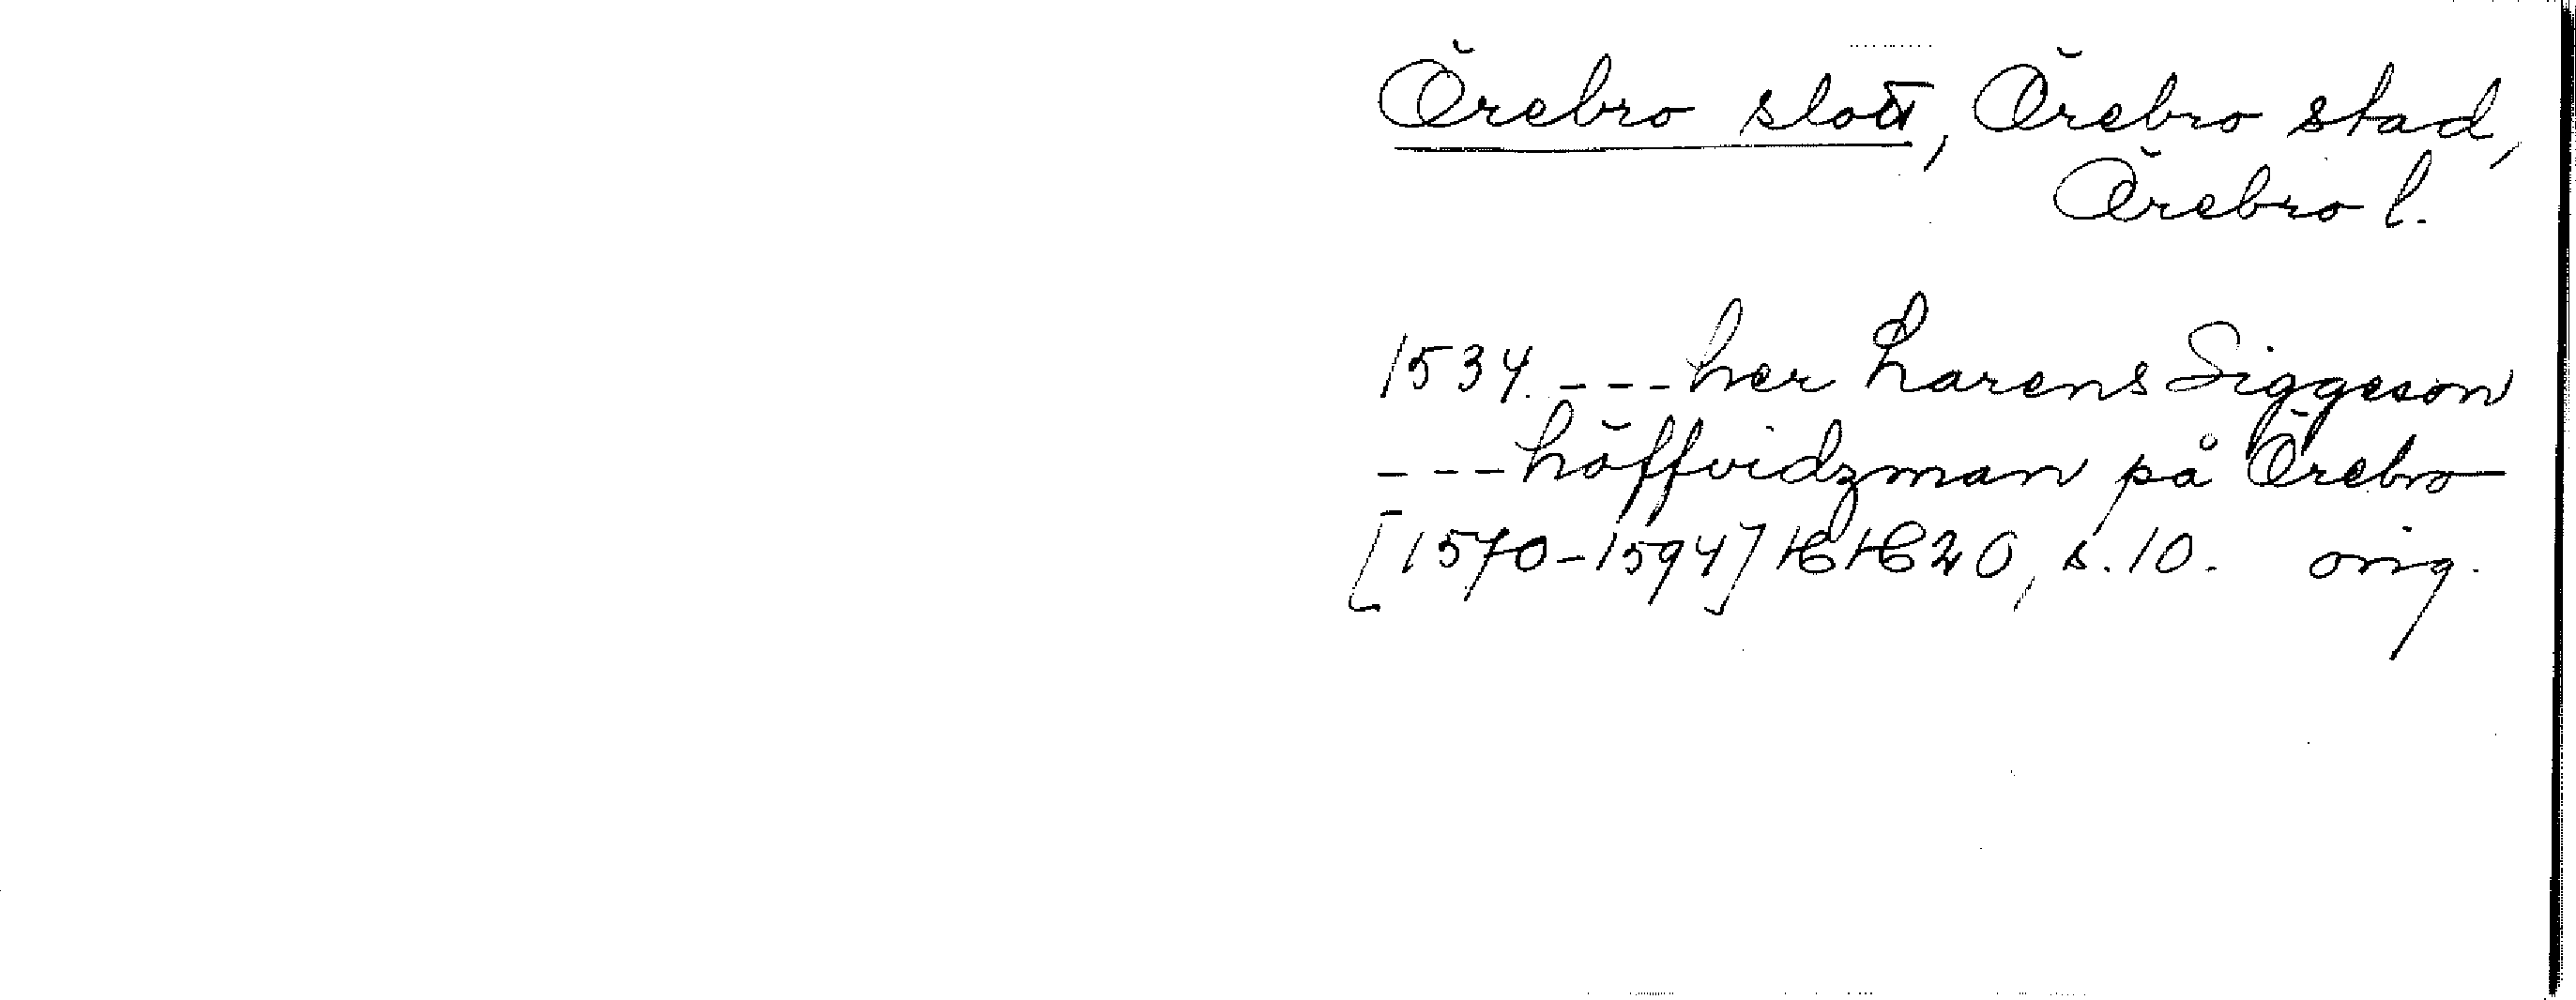 Örebro slott, Örebro stad,
Örebro l.
1534. --- her Larens Siggeson
--- höffvidzman på Örebro
[1570-1594] HH 20, s. 10. orig.